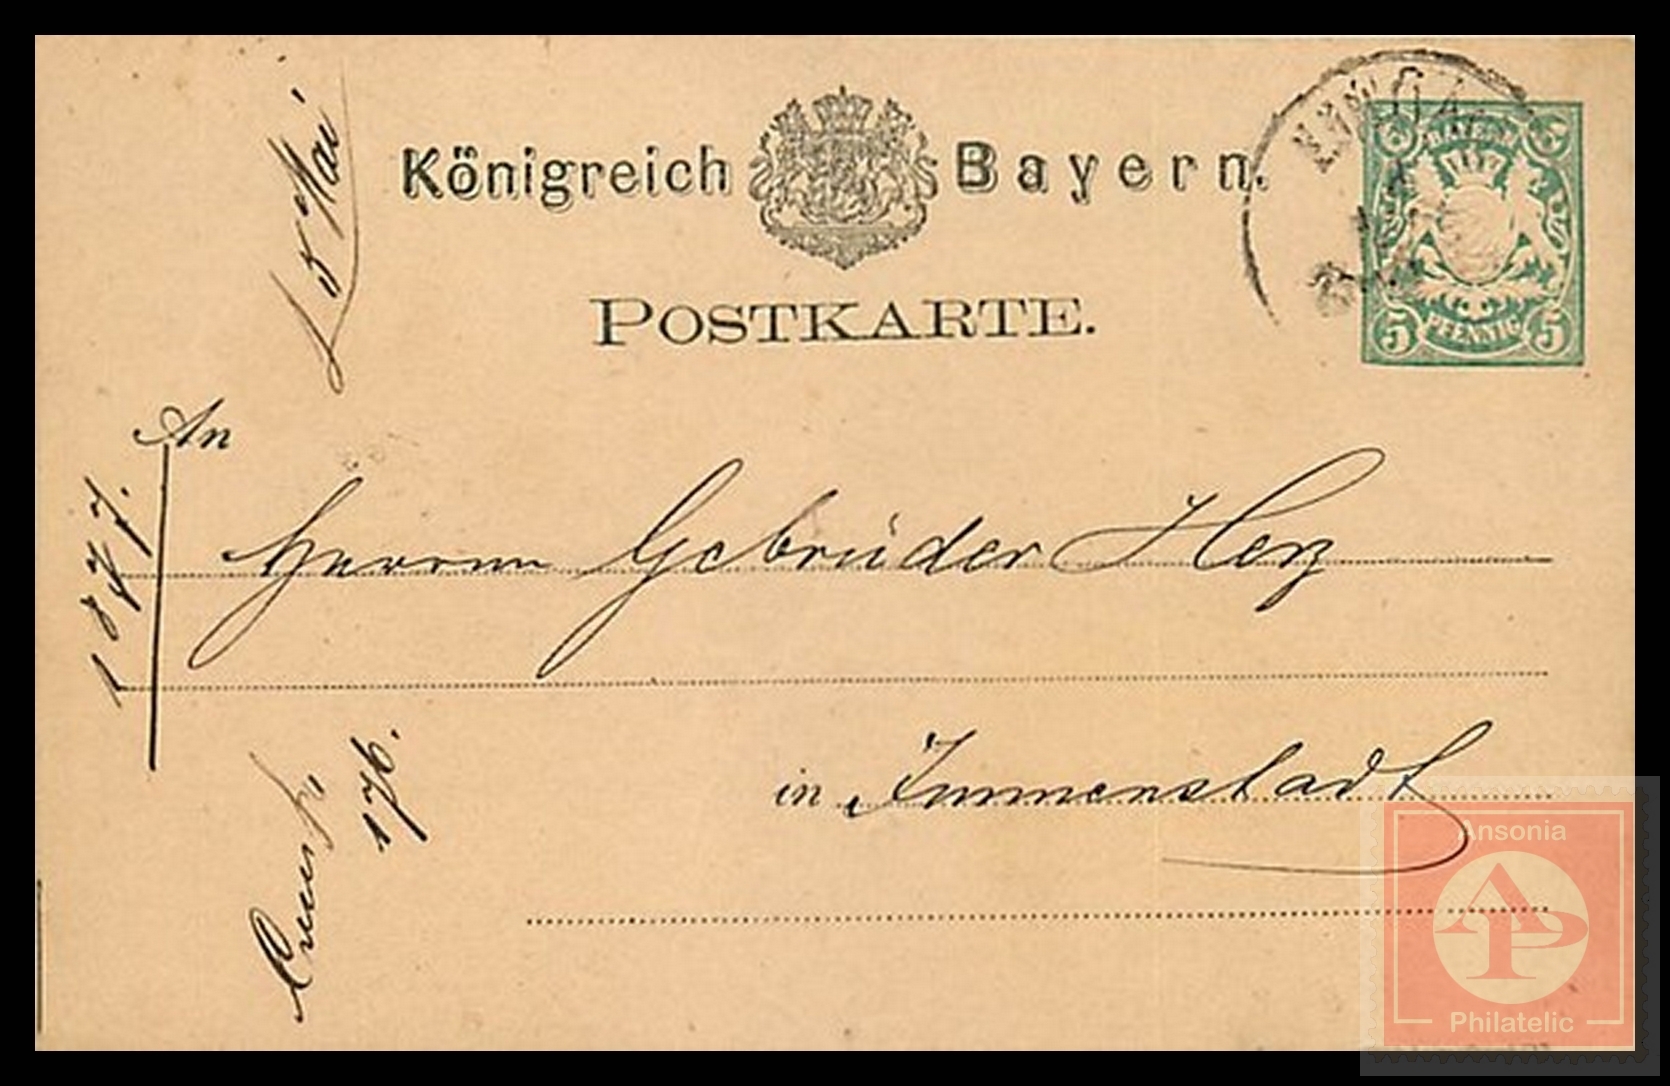 Königreich Bayern.
POSTKARTE.
BAYERN
5 PFENNIG 5
An
Herren Gebrüder Herz
in Immenstadt
5 Mai
1877.
176.
Ansonia
AP
Philatelic